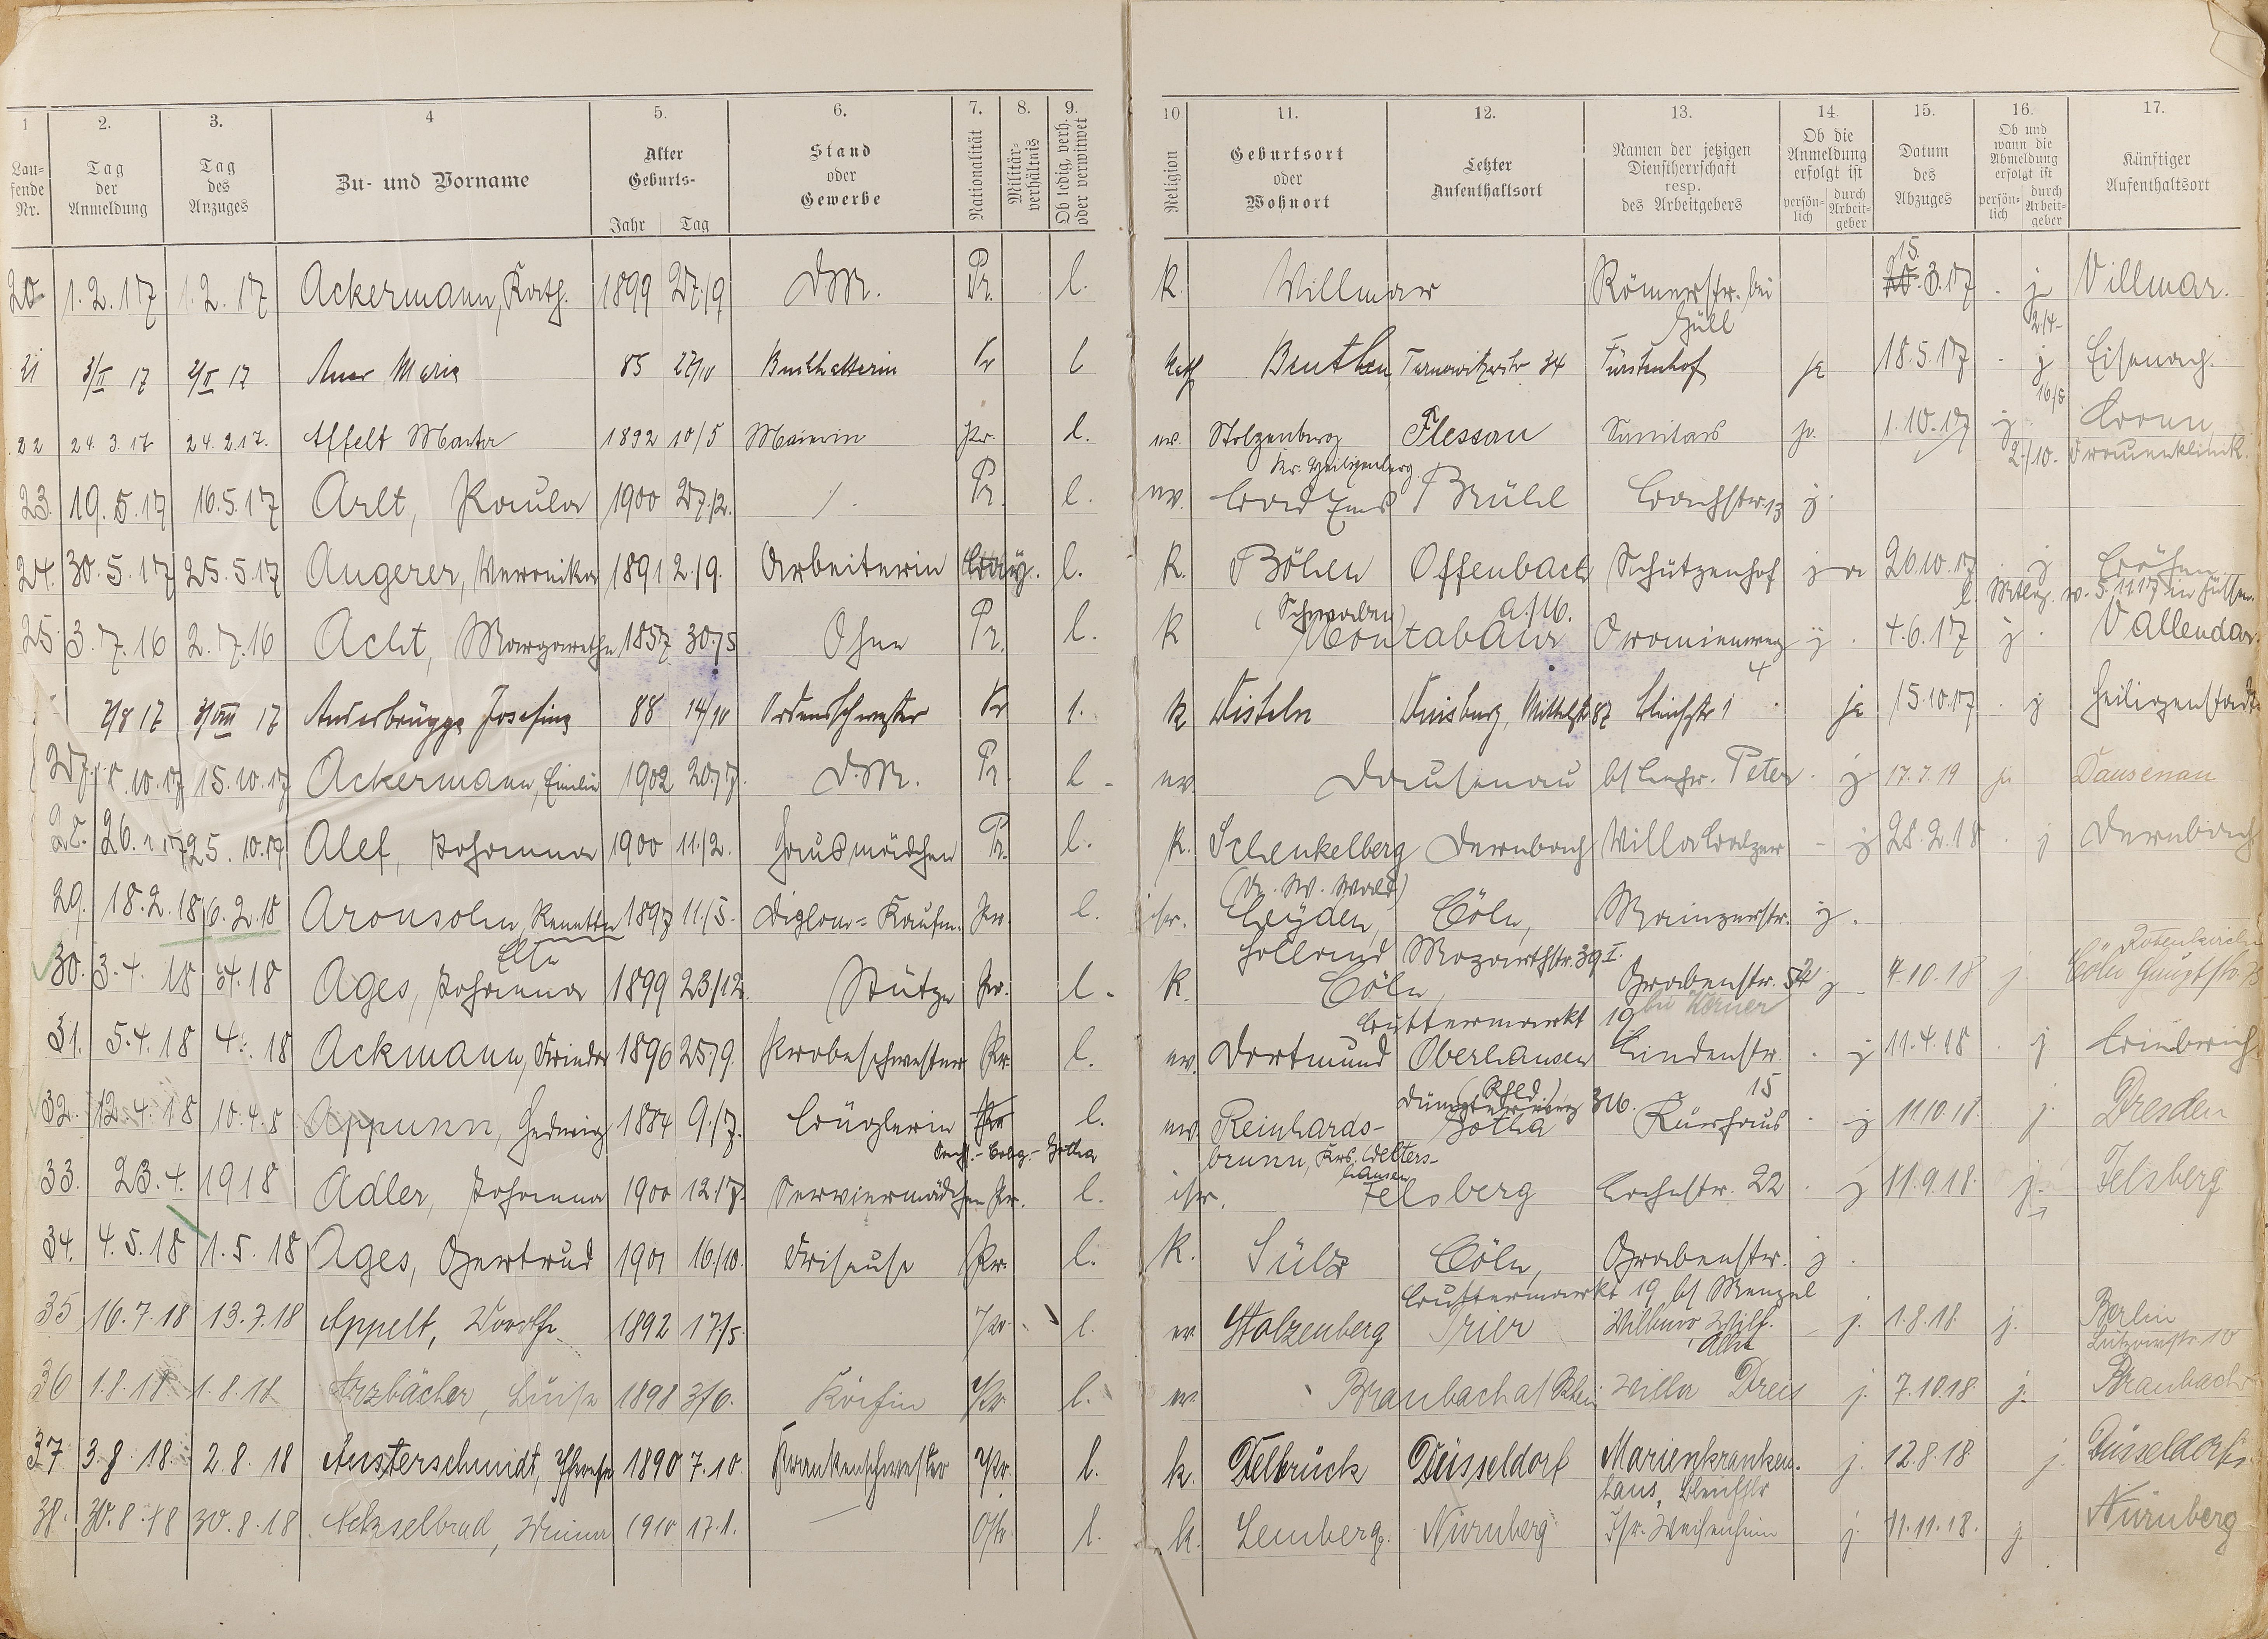 1 2. 3. 4 5. 6. 7. 8. 9. 10 11. 12. 13. 14. 15. 16. 17.
Lau-
fende
Nr.
Tag
der
Anmeldung
Tag
des
Anzuges
Zu- und Vorname
Alter
Geburts-
Jahr Tag
Stand
oder
Gewerbe
Nationalität
Militär-
verhältnis
Ob ledig, verh.
oder verwitwet
Religion
Geburtsort
oder
Wohnort
Letzter
Aufenthaltsort
Namen der jetzigen
Dienstherrschaft
resp.
des Arbeitgebers
Ob die
Anmeldung
erfolgt ist
persön-
lich
durch
Arbeit-
geber
Datum
des
Abzuges
Ob und
wann die
Abmeldung
erfolgt ist
persön-
lich
durch
Arbeit-
geber
Künftiger
Aufenthaltsort
15.
20 1.2.17 1.2.17 Ackermann, Kath. 1899 27./9 DM. Pr. l. k. Villmar Römerstr. bei 3.17 j Villmar.
2/4
21 3/II 17 2/II 17 Auer Maria 85 27/10 Buchhalterin Pr l kath Beuthen Tarnowitzerstr 34 Fürstenhof ja 18.5.17 j Eisenach.
16/5
22 24.3.17 24.2.17. Affelt Marta 1892 10/5 Pr. l. ev. Stolzenberg Flessau Sanitas ja. 1.10.17 j.
Kr. Heiligenberg 2./10. Frauenklinik.
23. 19.5.17 16.5.17 Arlt, Paula 1900 27./2. /. Pr. l. ev. Bad Ems Brühl Bachstr. 13 j.
24. 30.5.17 25.5.17 Augerer, Weronika 1891 2./9. Arbeiterin Bay. l. k. Böhen Offenbach Schützenhof ja 26.10.17 j Böhen
(Schwaben) a./M. 5.11.17 in Füssen.
25. 3.7.16 2.7.16 Acht, Margarethe 1857 30./5 Ohne Pr. l. k Montabaur Oranienweg j. 4.6.17 j. Vallendar.
4
2/8 17 3/VIII 17 Austerbrügge Josefine 88 14/10 Ordensschwester Pr l. k Disteln Duisburg, Mittelstr 87 Bleichstr 1 ja 15.10.17 j Heiligenstadt.
27. 15.10.17 15.10.17 Ackermann, Emilie 1902 20./7. DM. Pr. l ev. Dausenau b/ Lehr. Peter j 17.7.19 ja Dausenau
28. 26.17 25.10.17 Alef, Johanna 1900 11./2. Hausmädchen Pr. l. k. Schenkelberg Dernbach Villa Balzer j 28.2.18 j Dernbach
(Kr. W. Wald)
29. 18.2.18 16.2.18 Aronsohn, Renatte 1897 11./5. Diplom-Kaufm. Pr. l. isr. Leyden, Cöln, Mainzerstr. j.
Holland Mozarthstr. 39 I. Rodenkirchen
30. 3.4.18 3.4.18 Ages, Johanna 1899 23/12. Stütze Pr. l. k. Cöln, Grabenstr. 52 j 4.10.18 j. Cöln Hauptstr.
Buttermarkt 19
31. 5.4.18 4..18 Ackmann, Frieda 1896 25./9. Probeschwester Pr. l. ev. Dortmund Oberhausen Lindenstr. j 11.4.18 j Biebrich
(Rhld.) 15
316.
32. 12.4.18 10.4.18 Appunn, Hedwig 1884 9./7. Büglerin Pr l. ev. Reinhards- Gotha Kurhaus j 11.10.18. j. Dresden
Sachs.-Cobg.-Gotha brunn, Krs. Walters-
hausen
33. 23.4. 1918 Adler, Johanna 1900 12.17. Serviermädchen Pr. l. isr. Felsberg Bachstr. 22 j 11.9.18. j. Felsberg
34. 4.5.18 1.5.18 Ages, Gertrud 1901 16./10. Friseuse Pr. l. k. Sülz Cöln, Grabenstr. j.
Buttermarkt 19 b/ Menzel
35 16.7.18 13.7.18 Appelt, 1892 17/5. Pr. l. ev Stolzenberg Trier j. 1.8.18. j. Berlin
Lützowstr. 10
36 1.8.18 1.8.18 Arzbächer, Luise 1898 3/6. Köchin Pr. l. ev. Braubach a/ Rhein Villa Dreis j. 7.10.18. j. Braubach
37 3.8.18 2.8.18 Austerschmidt, 1890 7.10. Krankenschwester Pr. l. k. Delbrück Düsseldorf Marienkranken- j. 12.8.18 j. Düsseldorf.
haus, Bleichstr
38. 30.8.18 30.8.18 Achselbrad, 1910 17.1. Östr. l. k. Lemberg. Nürnberg j. 11.11.18. j. Nürnberg